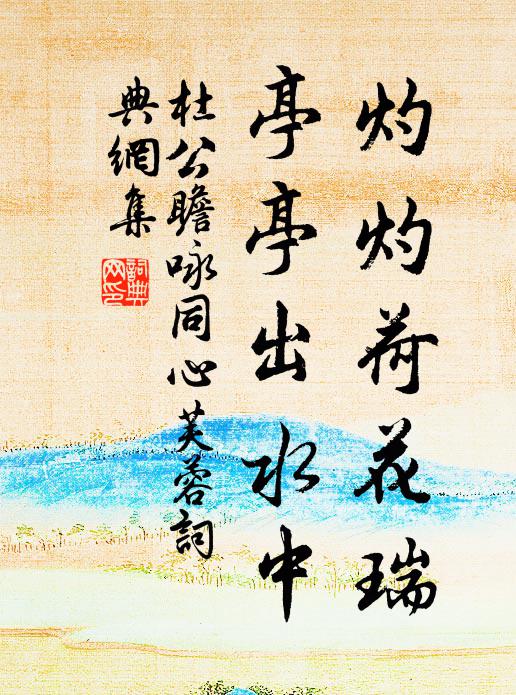 灼灼荷花瑞
亭亭出水中
杜公瞻咏同心芙蓉詞
典網集
詞典網印